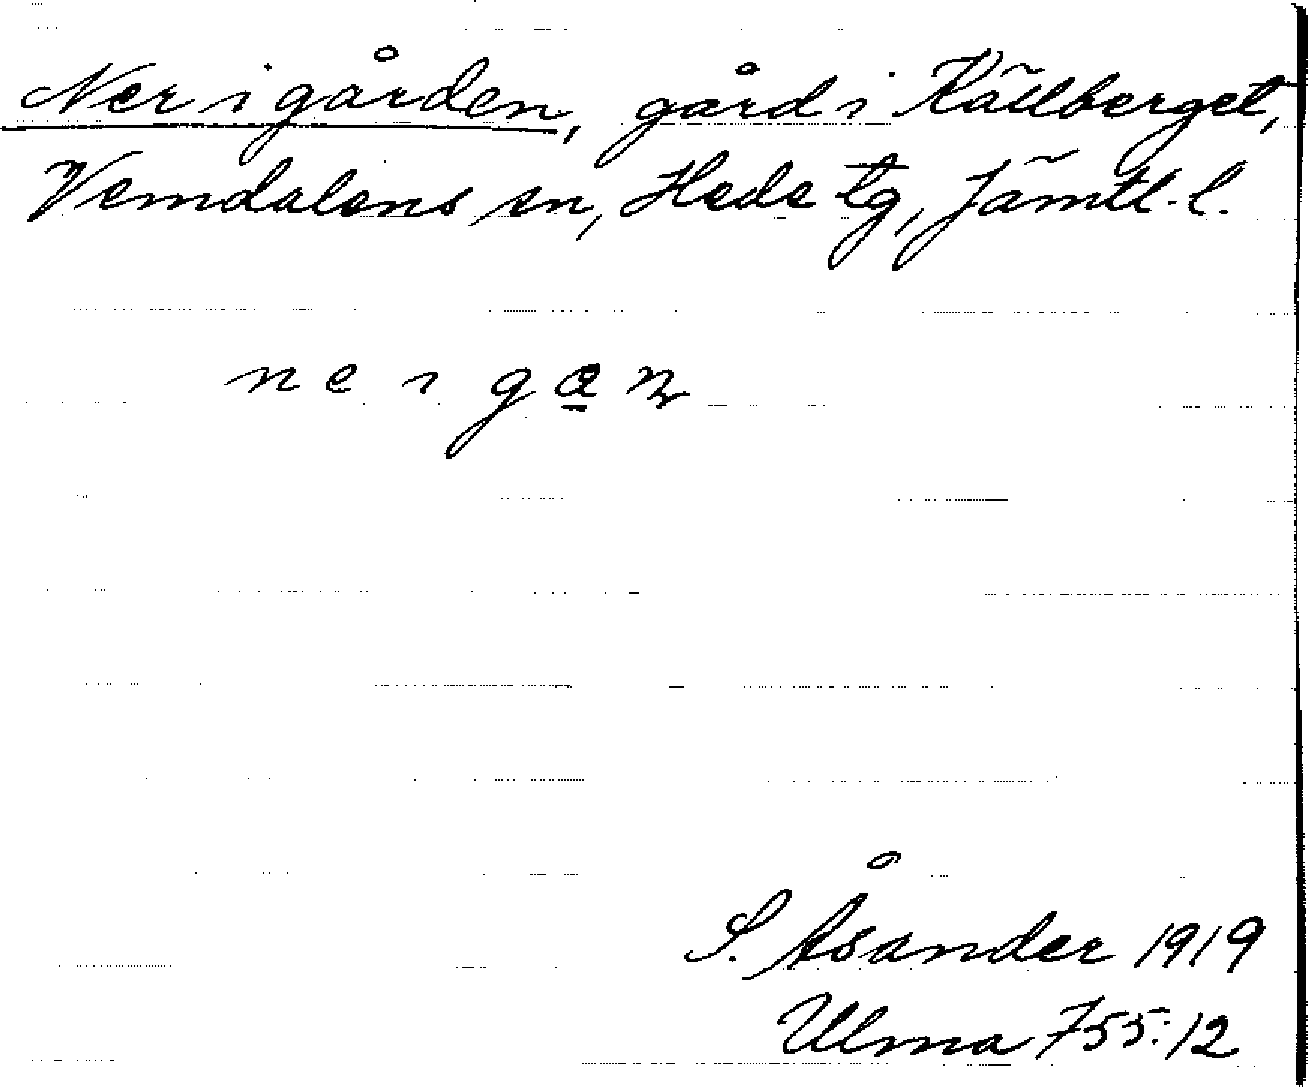 Nerigården, gård i Källberget,
Vemdalens sn, Hede tg, Jämtl. l.
neigаn
S. Åsander 1919
Ulma 755:12